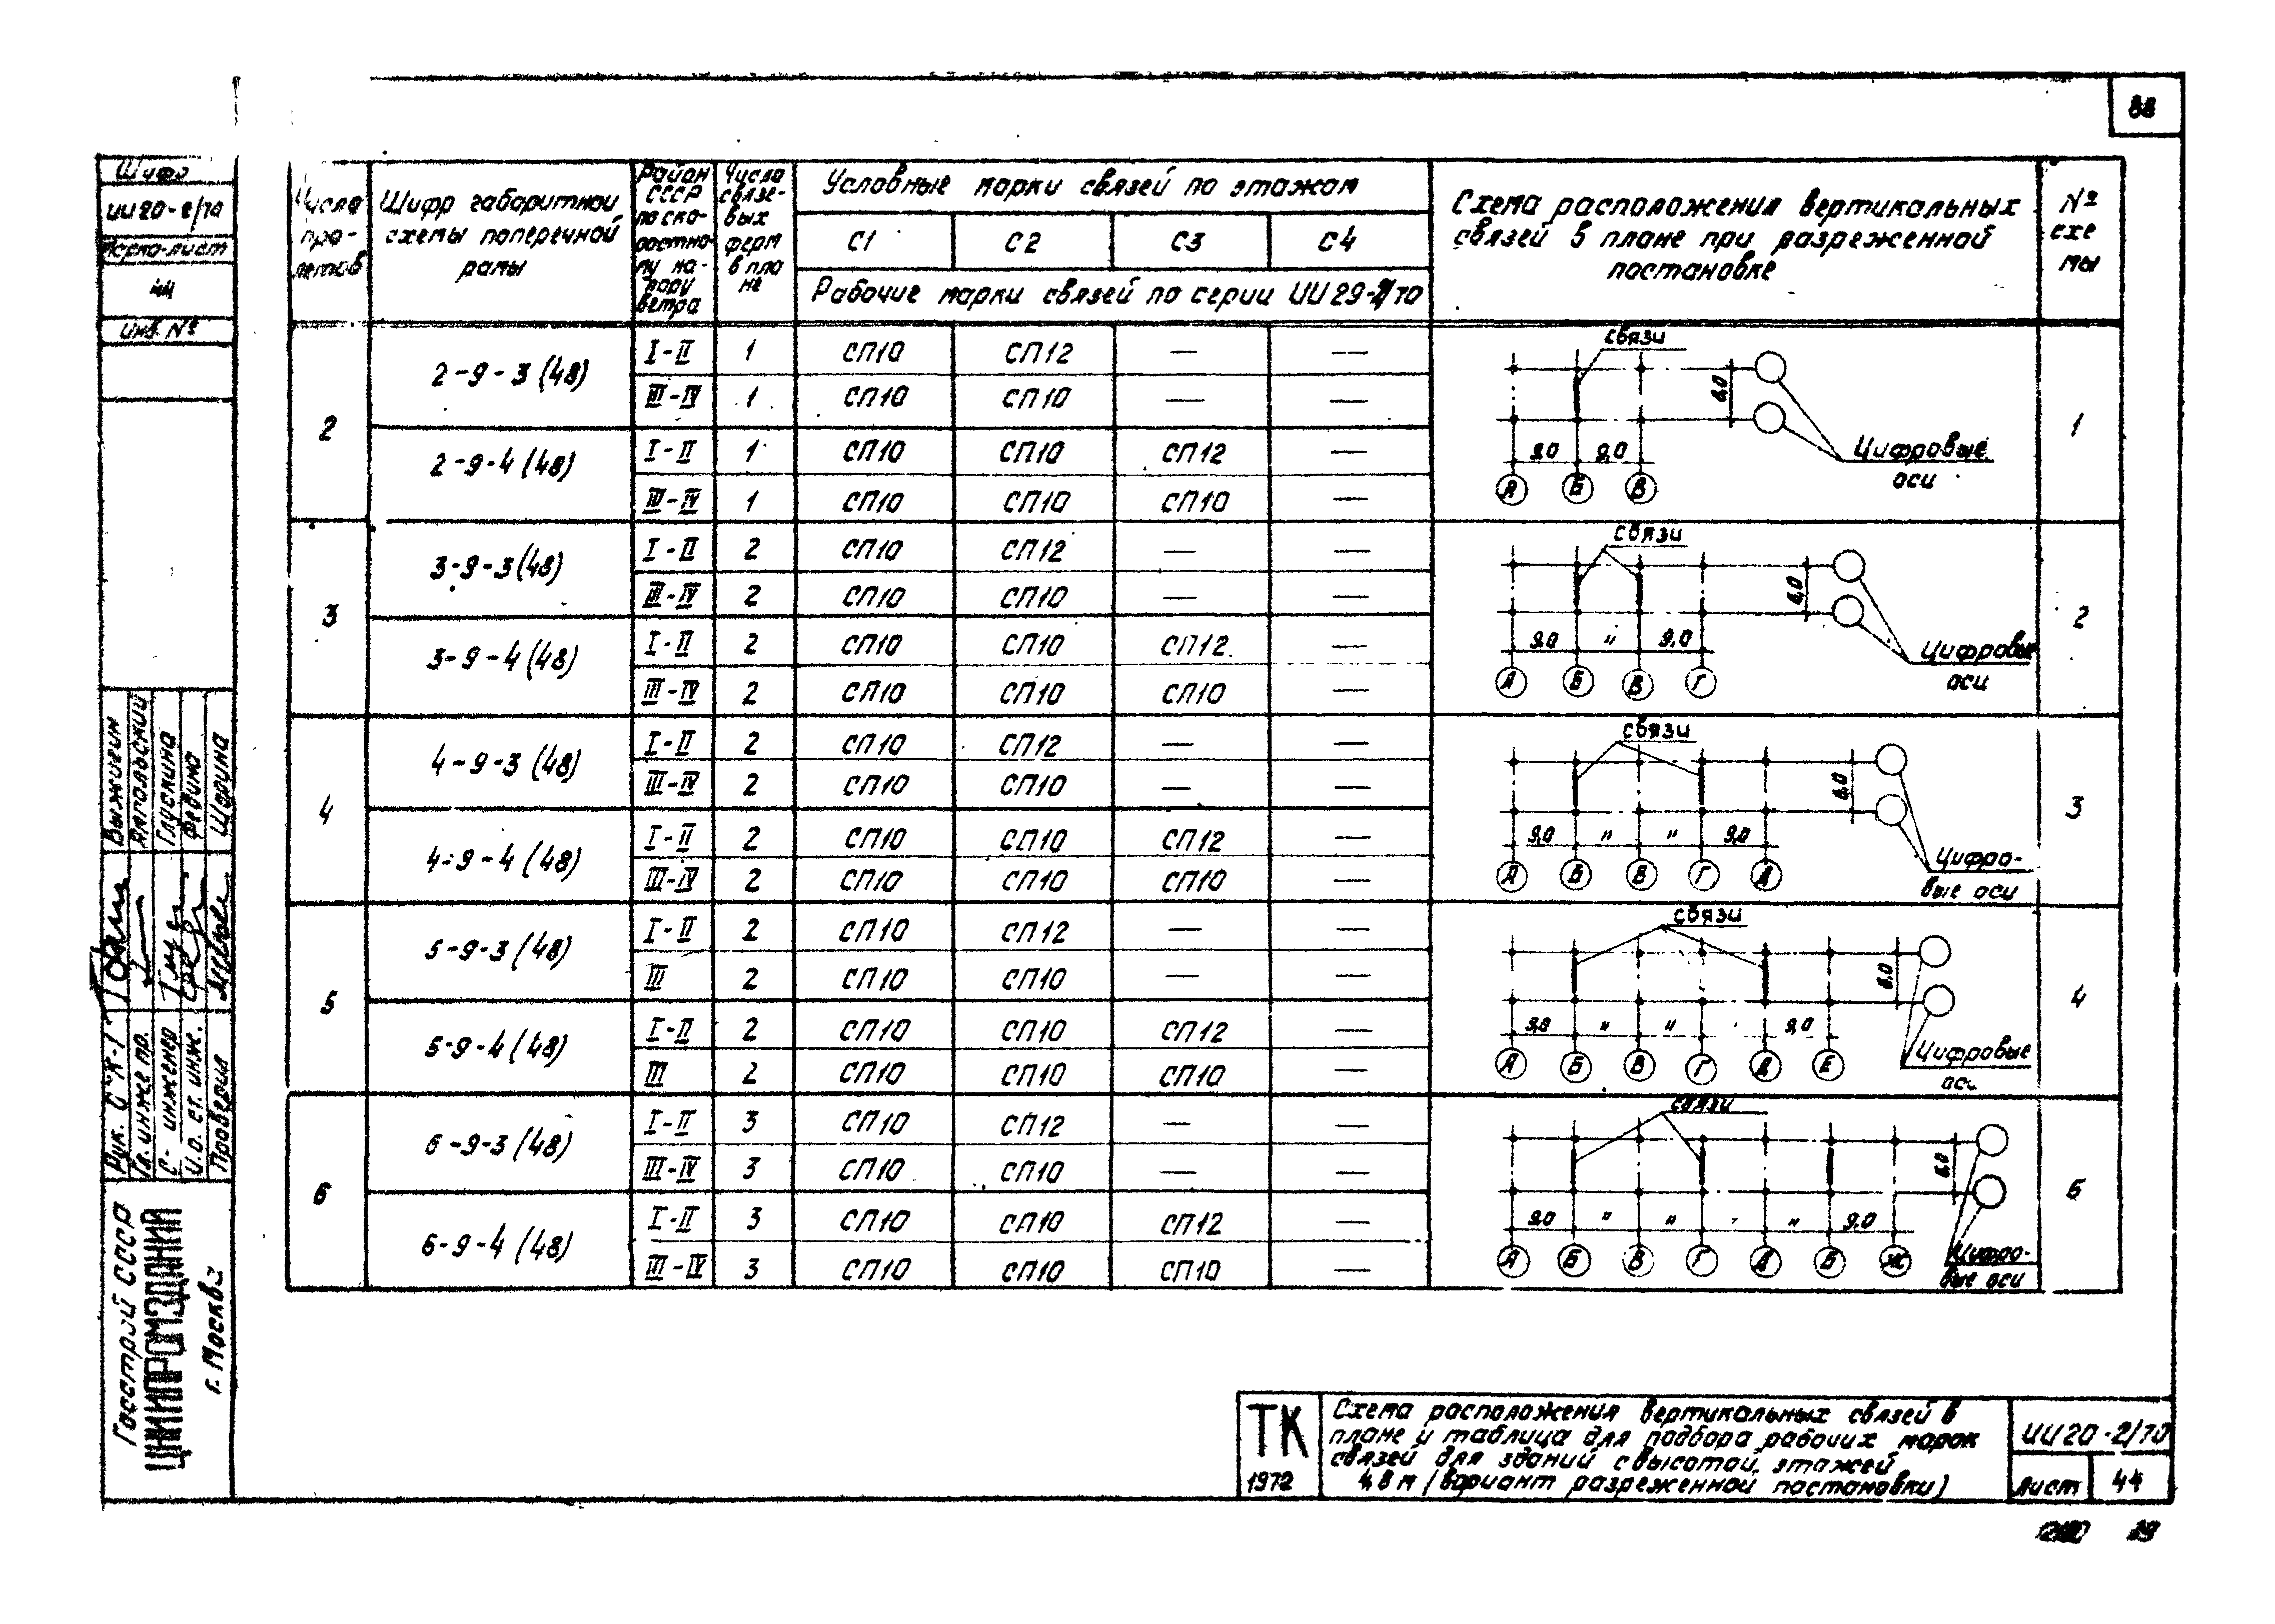 88
Шифр
ИИ20-2/70
Марка-лист
44
Инв. №
Выжигин
Глускина
Федина
Шарина
Рук. СК-1
Гл. инж. пр.
инженер
И.о. ст. инж.
Проверил
Госстрой СССР
ЦНИИПРОМЗДАНИЙ
г. Москва
Число пролетов
Шифр габаритной схемы поперечной рамы
Район СССР по скоростному напору ветра
Число связевых ферм в плане
Условные марки связей по этажам
С1 С2 С3 С4
Рабочие марки связей по серии ИИ29-2/70
Схема расположения вертикальных связей в плане при разреженной постановке
№ схемы
2
2-9-3 (48) I-II 1 СП10 СП12 — —
III-IV 1 СП10 СП10 — —
2-9-4 (48) I-II 1 СП10 СП10 СП12 —
III-IV 1 СП10 СП10 СП10 —
связи
6,0
9,0 9,0
А Б В
Цифровые
оси
1
3
3-9-3 (48) I-II 2 СП10 СП12 — —
III-IV 2 СП10 СП10 — —
3-9-4 (48) I-II 2 СП10 СП10 СП12 —
III-IV 2 СП10 СП10 СП10 —
связи
6,0
9,0 " 9,0
А Б В Г
Цифровые
оси
2
4
4-9-3 (48) I-II 2 СП10 СП12 — —
III-IV 2 СП10 СП10 — —
4-9-4 (48) I-II 2 СП10 СП10 СП12 —
III-IV 2 СП10 СП10 СП10 —
связи
6,0
9,0 " " 9,0
А Б В Г Д
Цифро-
вые оси
3
5
5-9-3 (48) I-II 2 СП10 СП12 — —
III 2 СП10 СП10 — —
5-9-4 (48) I-II 2 СП10 СП10 СП12 —
III 2 СП10 СП10 СП10 —
связи
6,0
9,0 " " 9,0
А Б В Г Д Е
Цифровые
оси
4
6
6-9-3 (48) I-II 3 СП10 СП12 — —
III-IV 3 СП10 СП10 — —
6-9-4 (48) I-II 3 СП10 СП10 СП12 —
III-IV 3 СП10 СП10 СП10 —
связи
6,0
9,0 " " " 9,0
А Б В Г Д Б Ж
Цифро-
вые оси
5
ТК
1972
Схема расположения вертикальных связей в
плане и таблица для подбора рабочих марок
связей для зданий с высотой этажей
4,8 м (вариант разреженной постановки)
ИИ20-2/70
Лист 44